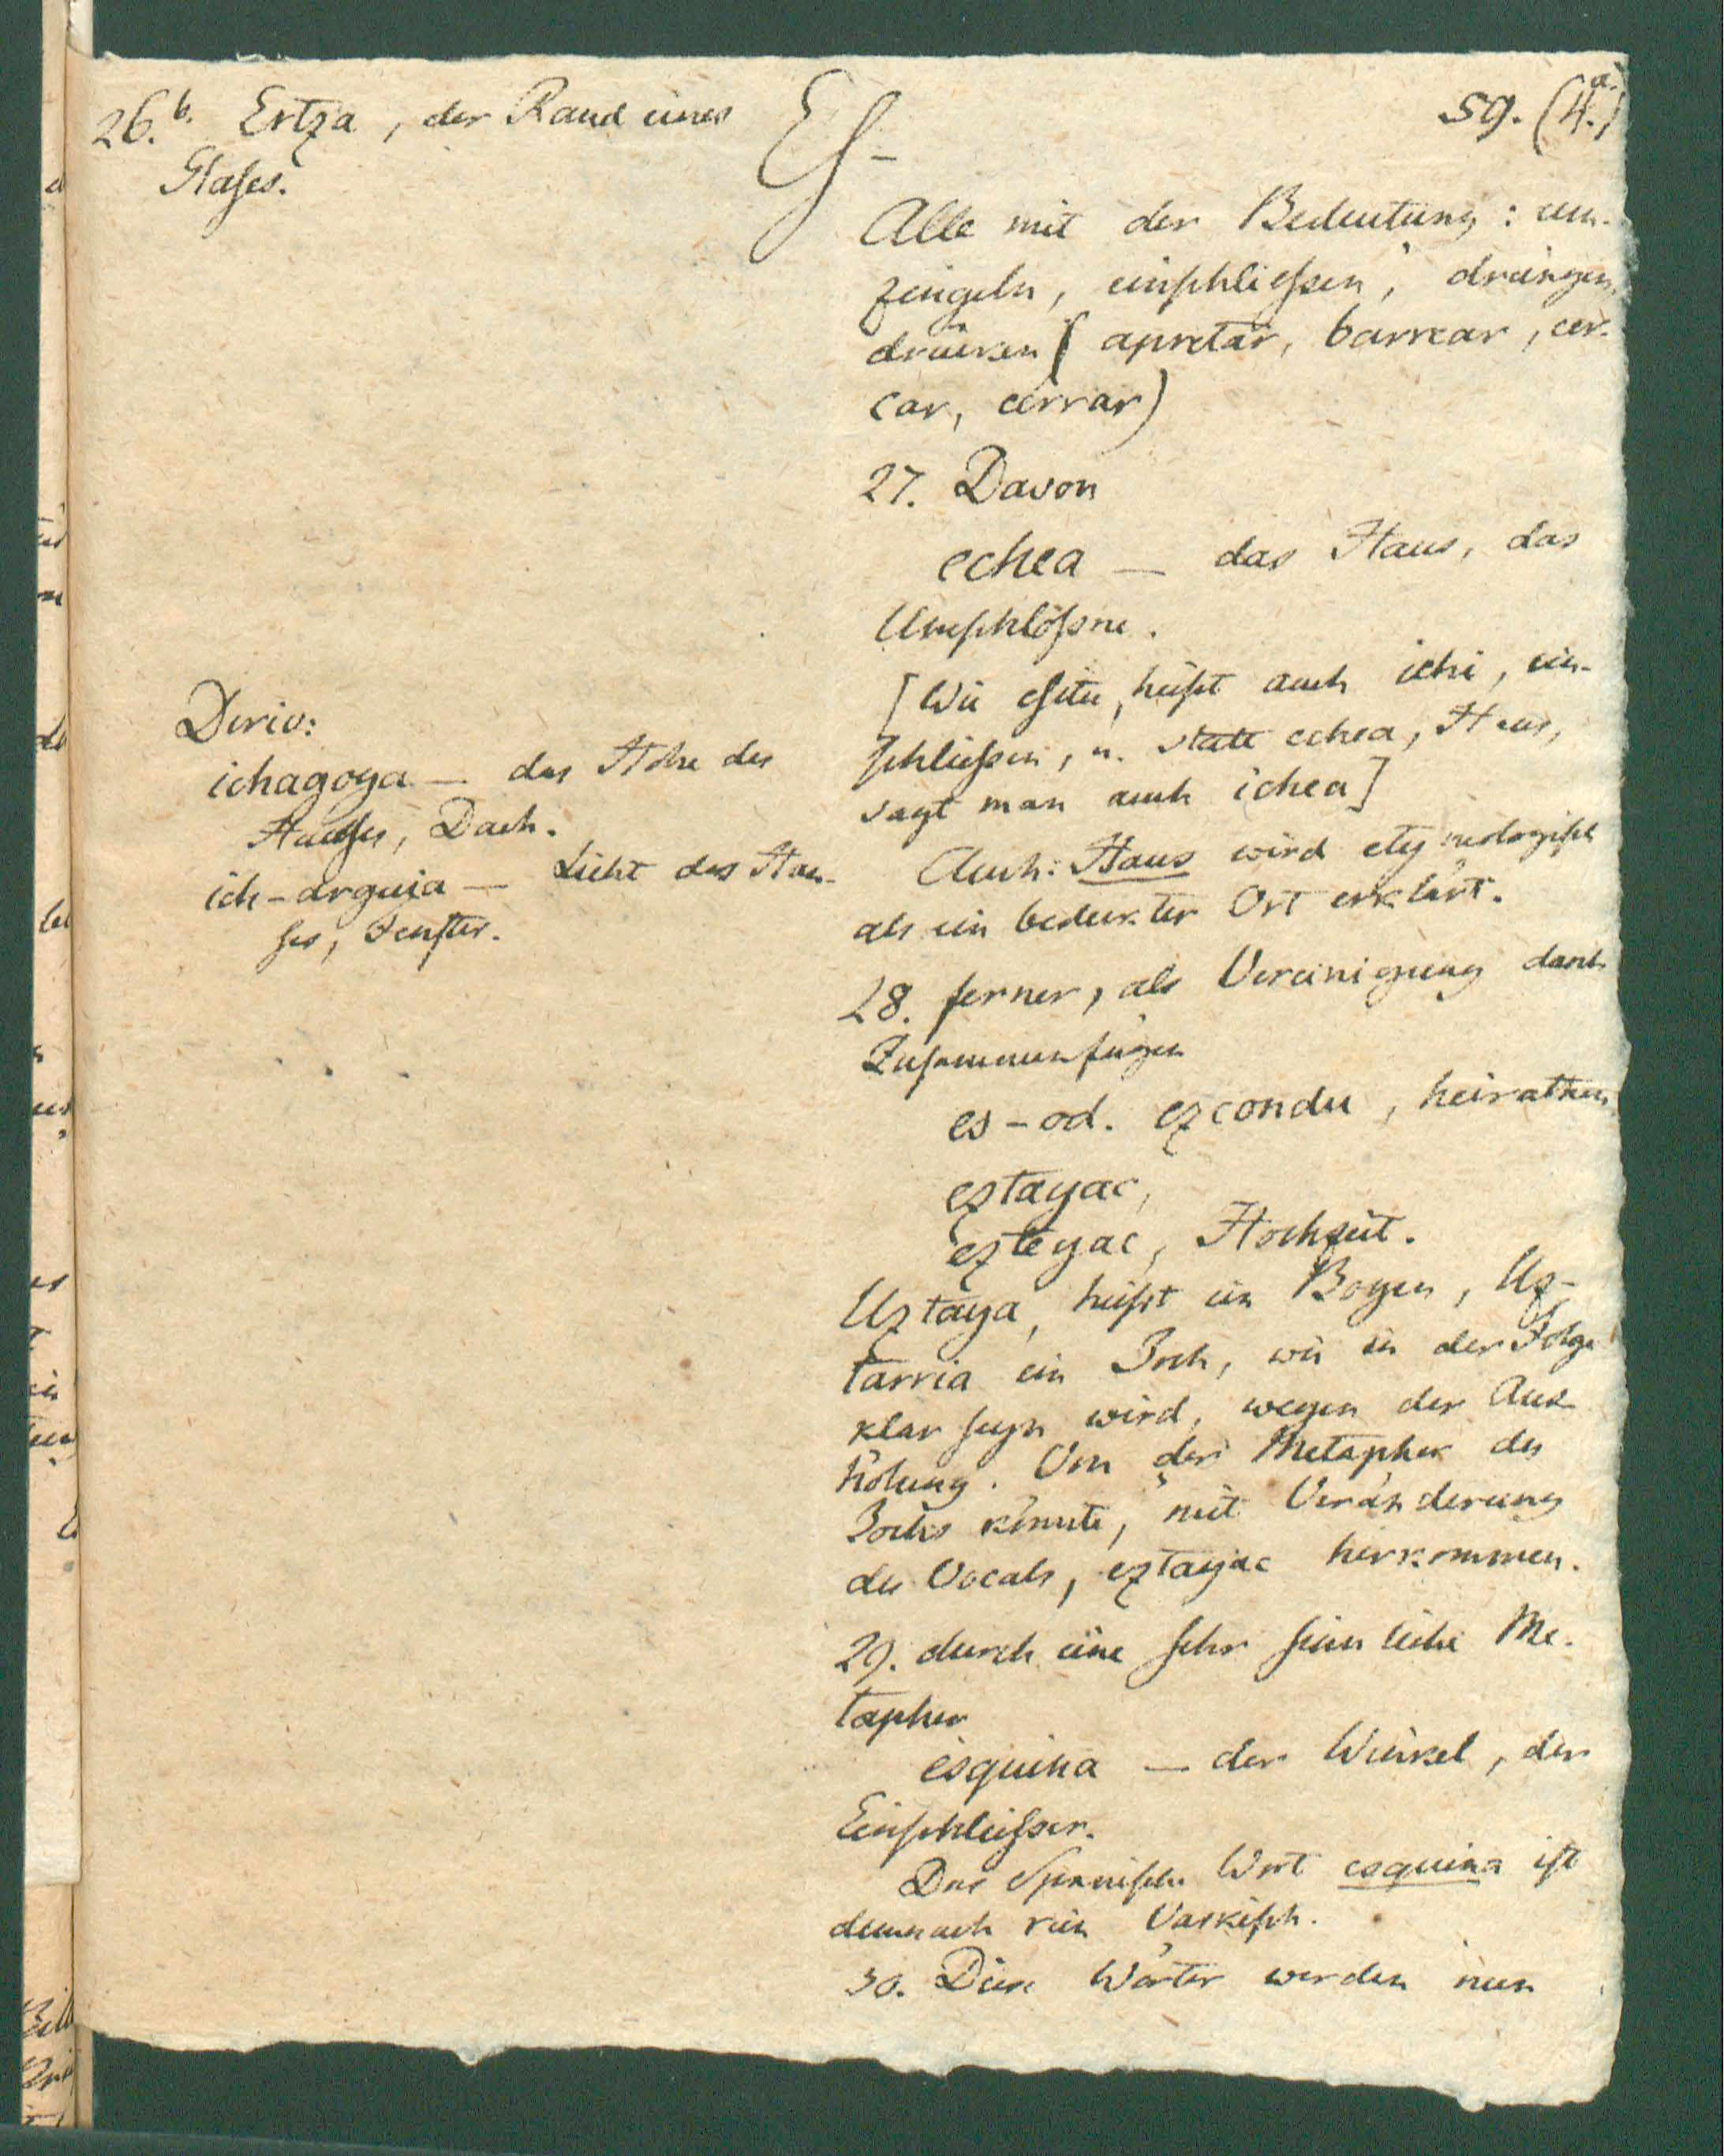 59. (4.a)
Es-
26.b. Ertza, der Rand eines
Glases.
Alle mit der Bedeutung: um-
zingeln, einschliessen, drängen,
drücken (apretar, barrear, cer-
car, cerrar)
27. Davon
echea — das Haus, das
Umschlossne.
[Wie esitu, heisst auch ichi, ein-
schliessen, u. statt echea, Haus,
sagt man auch ichea]
Deriv:
ichagoya — das Hohe des
Hauses, Dach.
ich-arguia — Licht des Hau-
ses, Fenster.
Auch: Haus wird etymologisch
als ein bedeckter Ort erklärt.
28. ferner, als Vereinigung durch
Zusammenfügen
es- od. ezcondu, heirathen
eztayac,
ezteyac, Hochzeit.
Uztaya, heisst ein Bogen, Uz-
tarria ein Joch, wie in der Folge
klar seyn wird, wegen der Aus-
hölung. Von der Metapher des
Jochs könnte, mit Veränderung
des Vocals, eztayac herkommen.
29. durch eine sehr sinnliche Me-
tapher
esquina — der Winkel, der
Einschliesser.
Das Spanische Wort esquina ist
demnach rein Vaskisch.
30. Diese Wörter werden nun